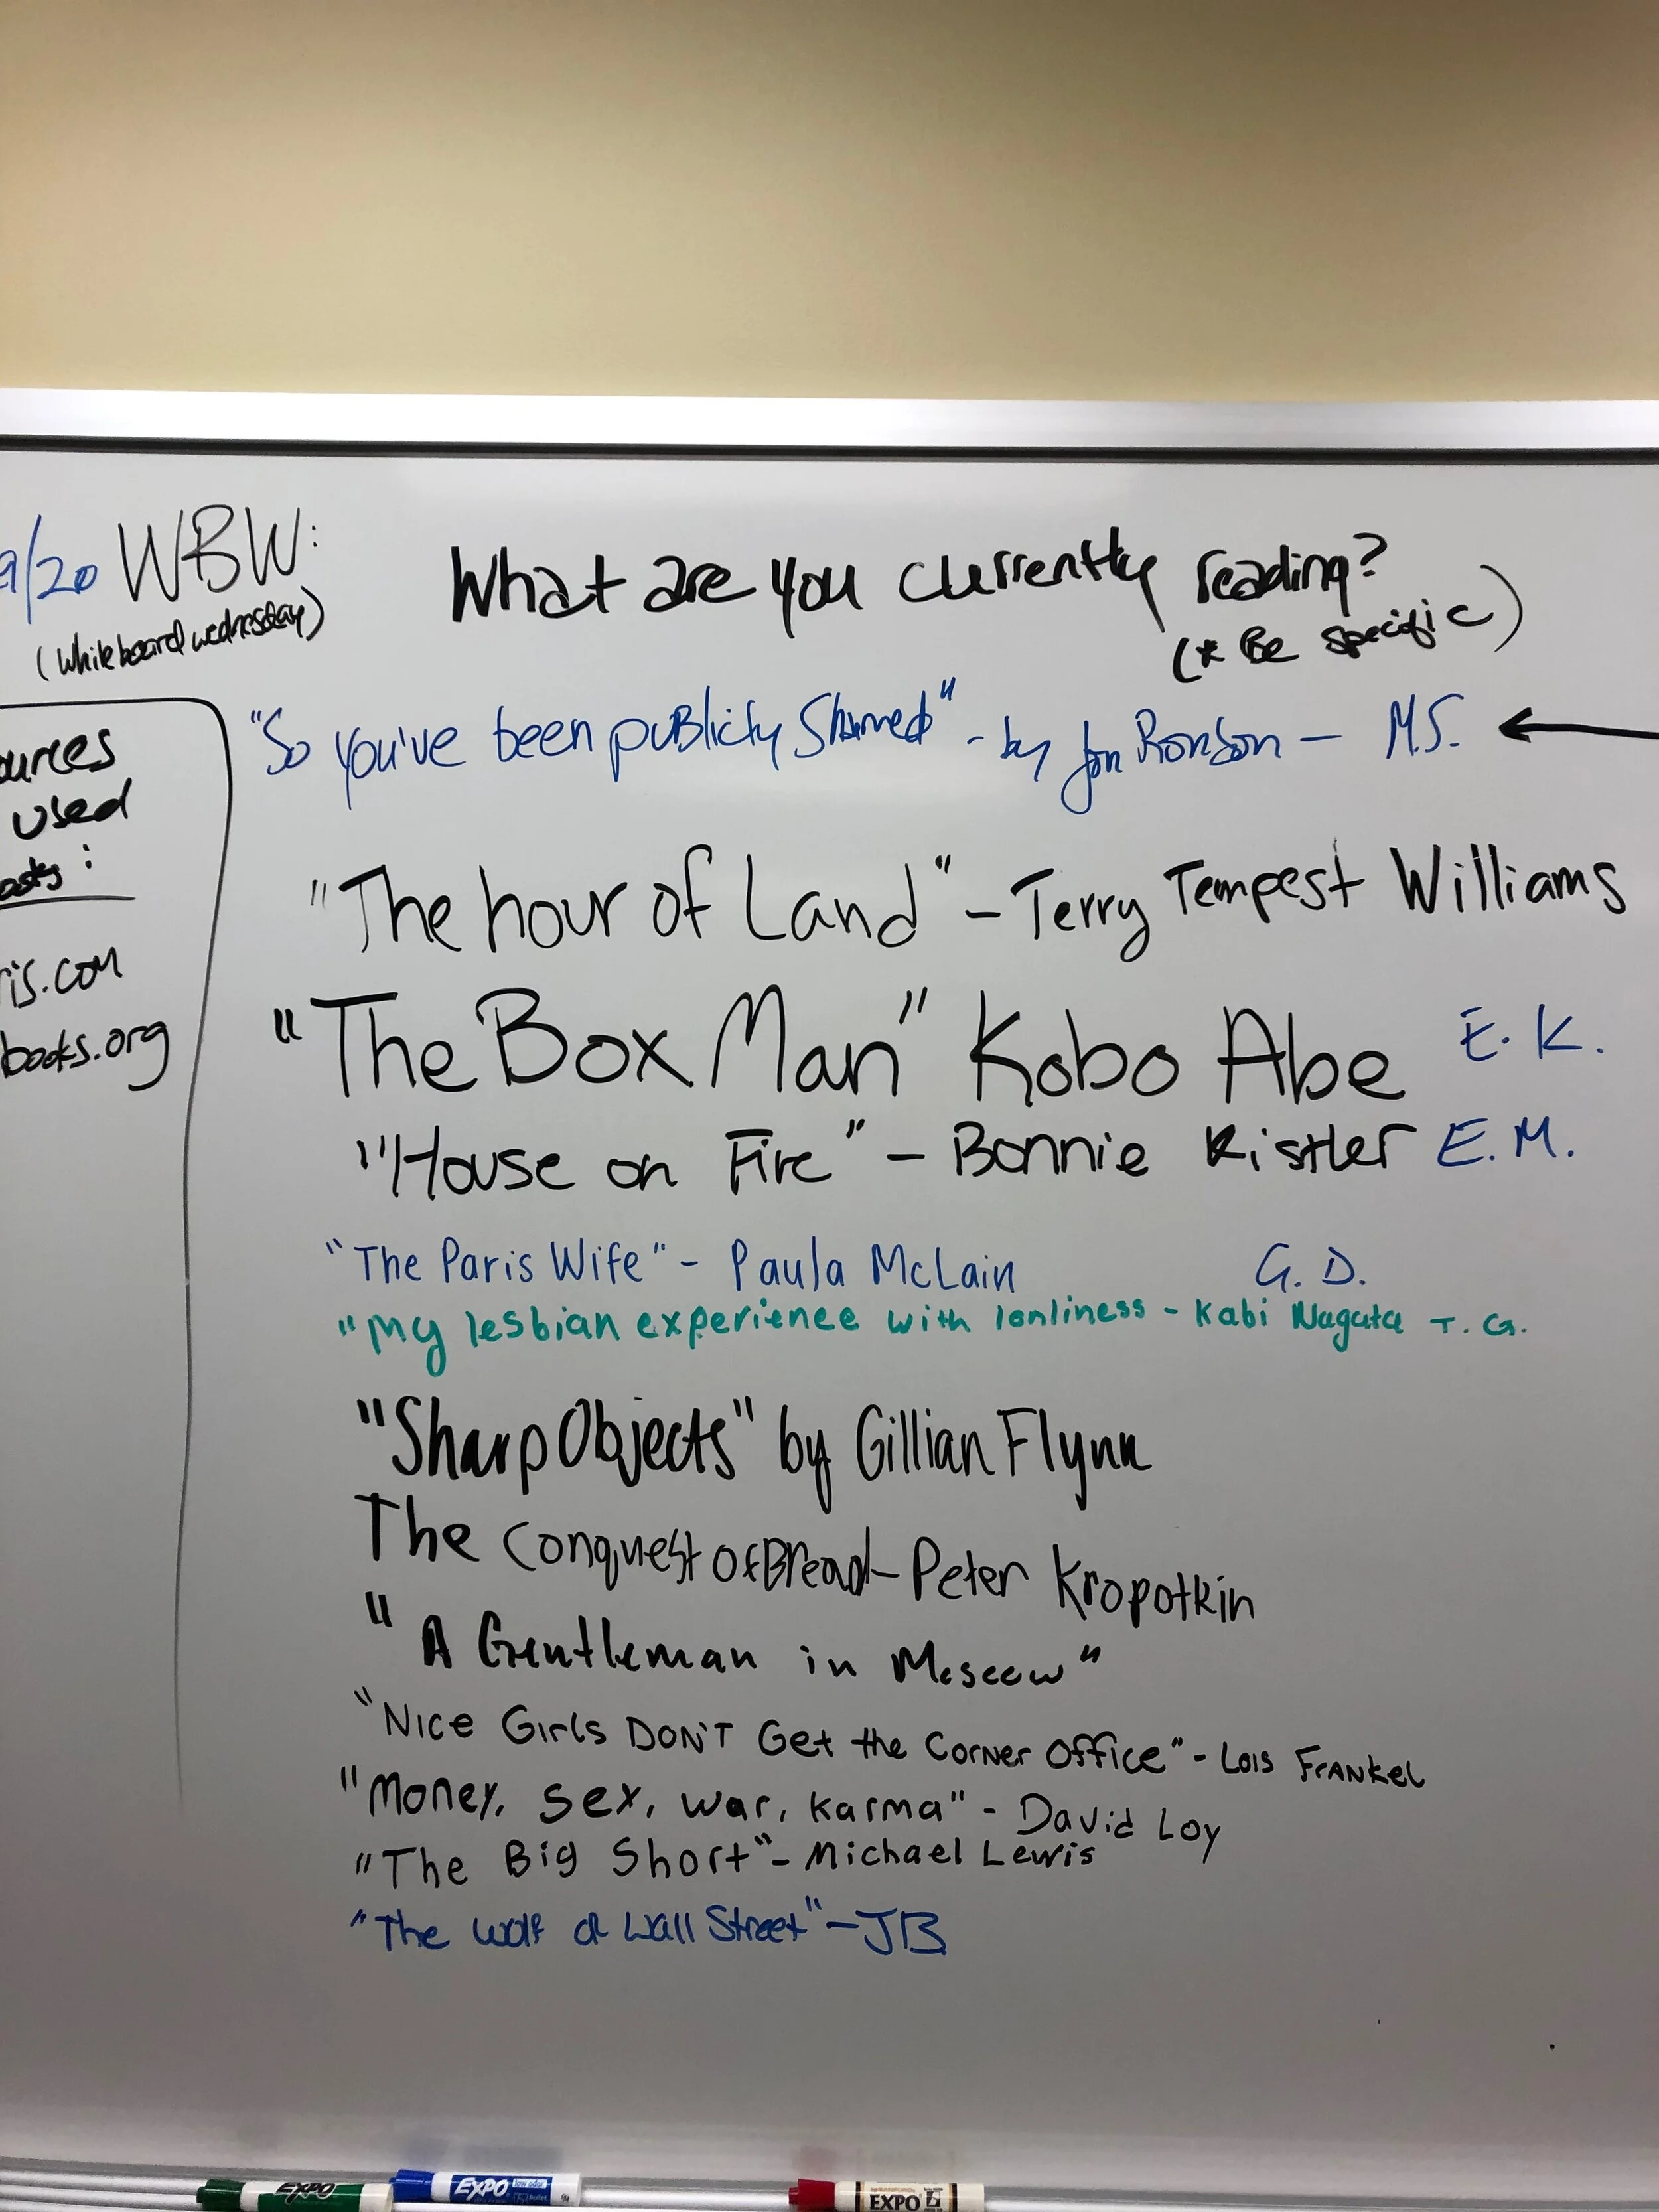 9/20 WBW:
(Whiteboard wednesday)
What are you currently reading?
(* Be specific)
ources
used
:
is.com
books.org
"So you've been publicly Shamed" - by Jon Ronson — M.S.
"The hour of Land" - Terry Tempest Williams
"The Box Man" Kobo Abe E. K.
"House on Fire" - Bonnie Kistler E.M.
"The Paris Wife" - Paula McLain G. D.
"My lesbian experience with lonliness - Kabi Nagata T. G.
"Sharp Objects" by Gillian Flynn
The Conquest of Bread - Peter Kropotkin
"A Gentleman in Moscow"
"Nice Girls DON'T Get the Corner Office" - Lois Frankel
"Money, sex, war, karma" - David Loy
"The Big Short" - Michael Lewis
"The Wolf of Wall Street" - JB
EXPO
EXPO low odor
EXPO